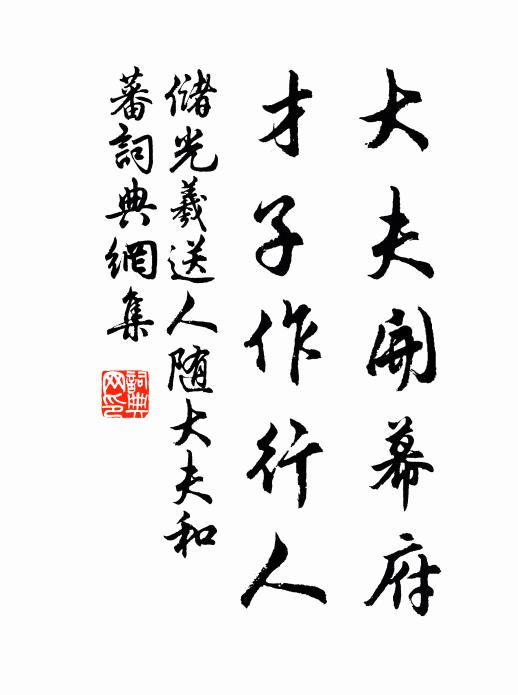 大夫開幕府
才子作行人
儲光羲送人随大夫和
蕃詞典網集
詞典
网印